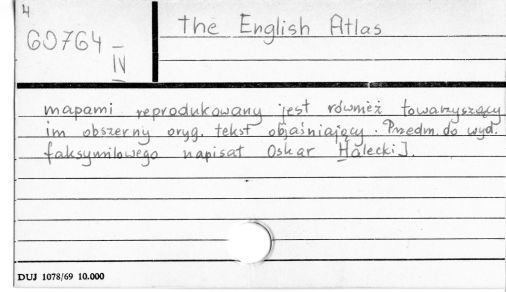 4
60764
IV
the English Atlas
mapami reprodukowany jest również towarzyszący
im obszerny oryg. tekst objaśniający. Przedm. do wyd.
faksymilowego napisał Oskar Halecki].
DUJ 1078/69 10.000